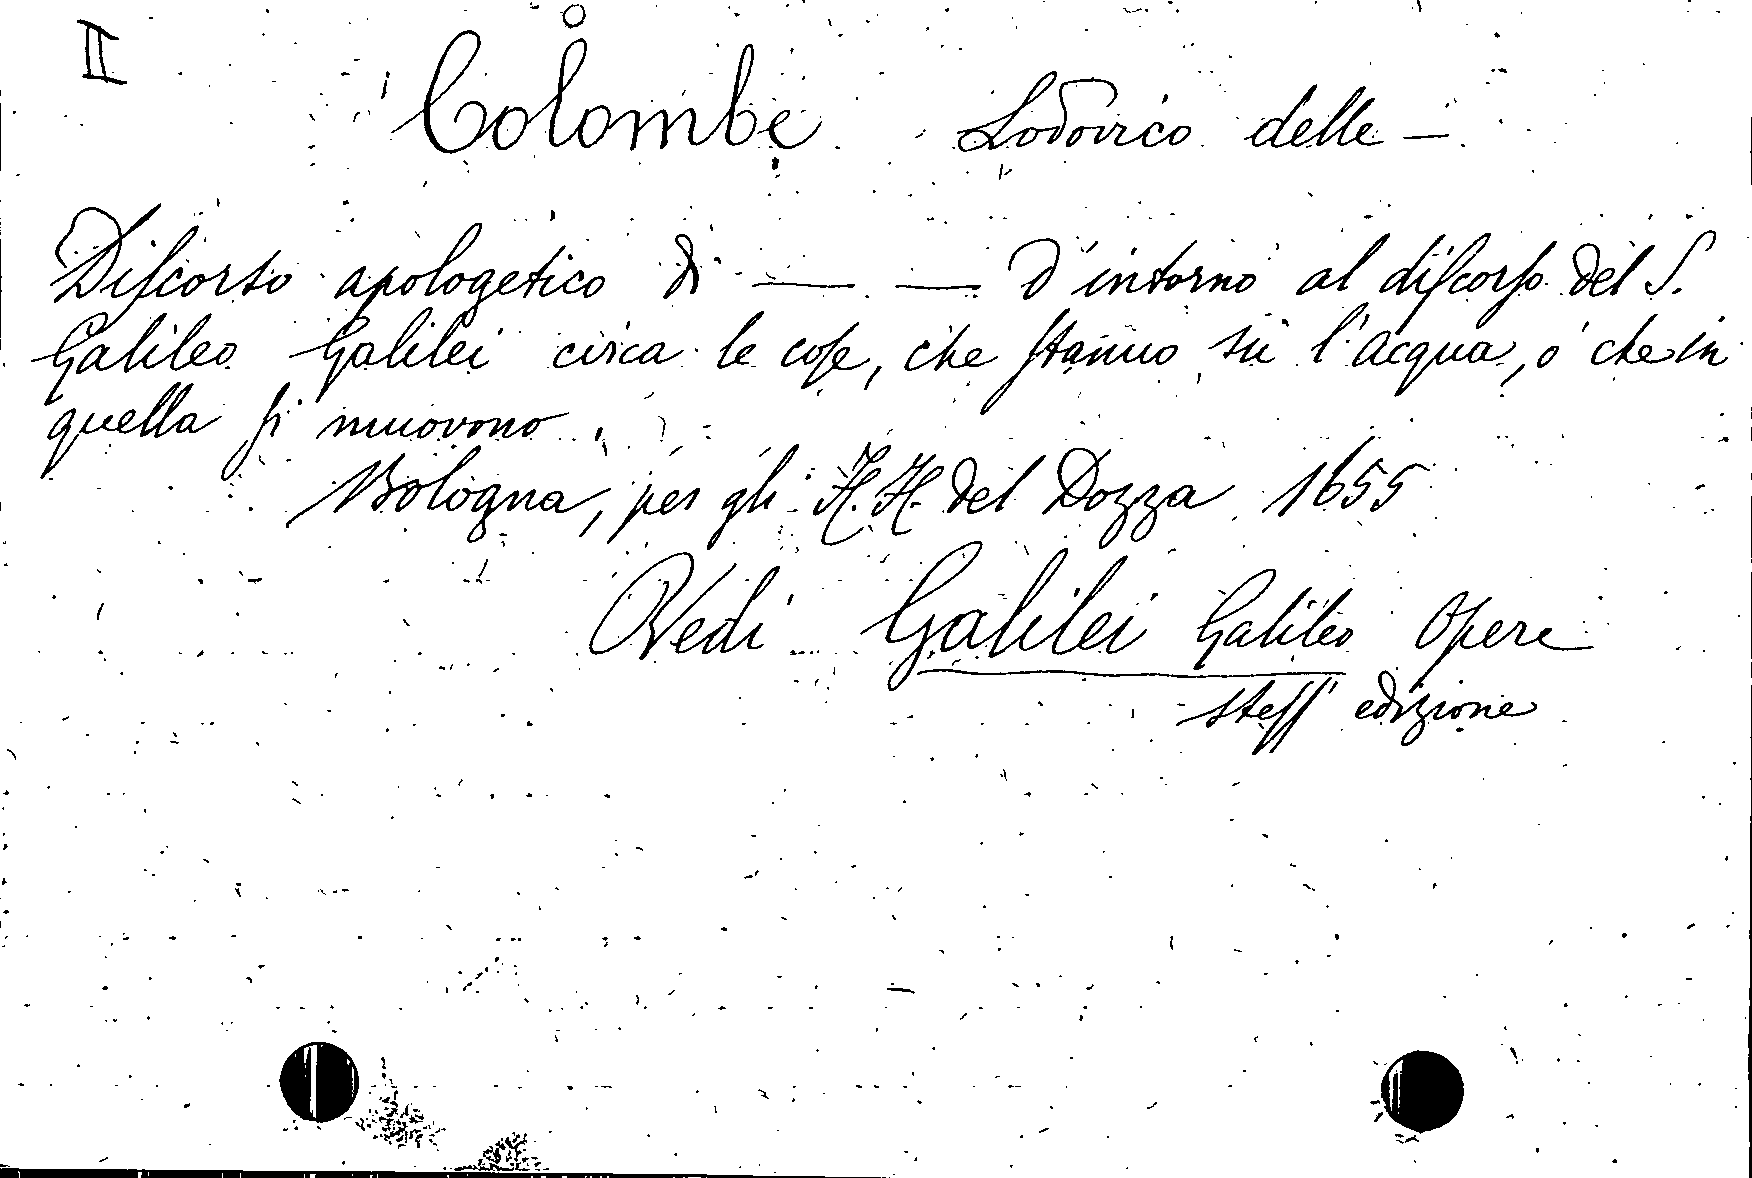 II
Colombe Lodovico delle —
Diſcorso apologetico di — — d'intorno al diſcorſo del S.
Galileo Galilei circa le coſe, che ſtanno sù l'acqua, ò che in
quella ſi muovono
Bologna, per gli H.H. del Dozza 1655
Vedi Galilei Galileo Opere
steſſ' edizione